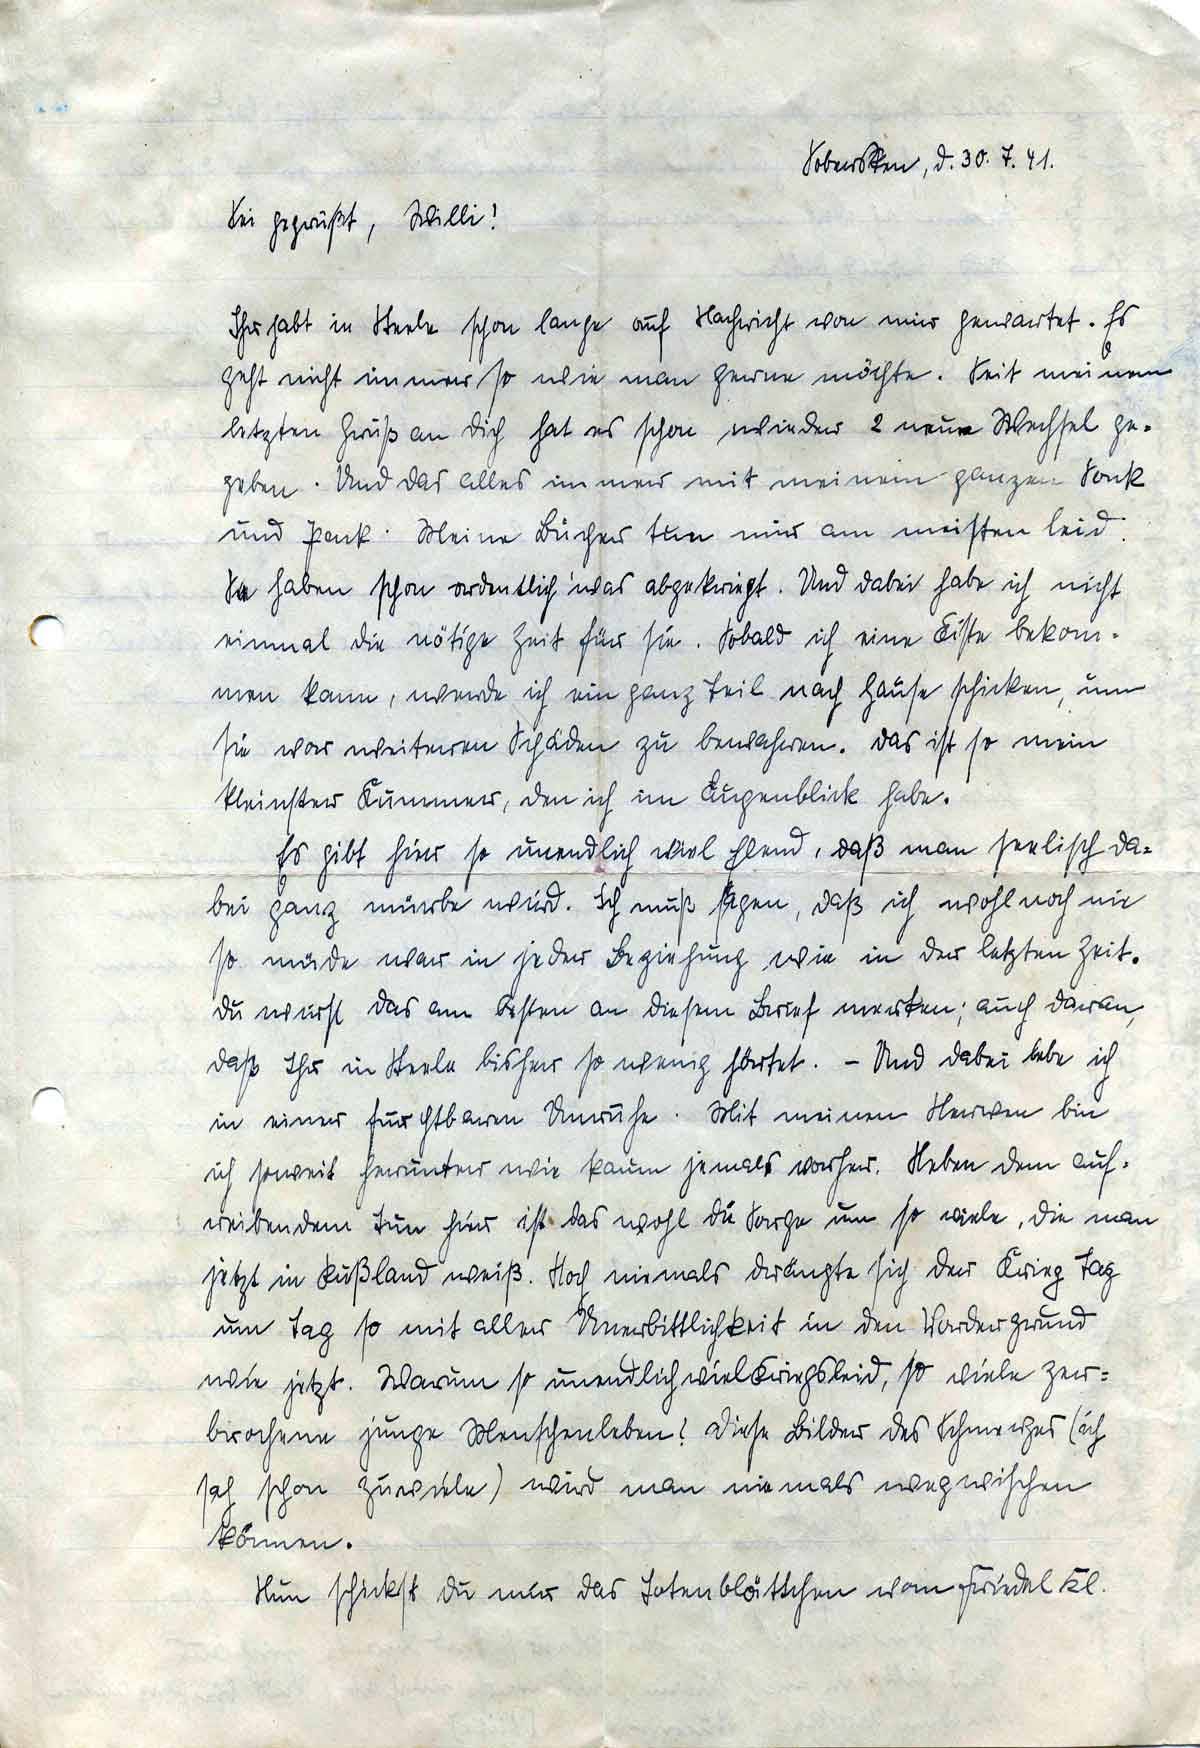 Sobersken, d. 30. 7. 41.
Sei gegrüßt, Willi!
Ihr habt in Steele schon lange auf Nachricht von mir gewartet. Es
geht nicht immer so wie man gerne möchte. Seit meinem
letzten Gruß an Dich hat es schon wieder 2 neue Wechsel ge-
geben. Und das alles immer mit meinem ganzen Sack
und Pack. Meine Bücher tun mir am meisten leid.
Sie haben schon ordentlich 'was abgekriegt. Und dabei habe ich nicht
einmal die nötige Zeit für sie. Sobald ich eine Kiste bekom-
men kann, werde ich ein ganz Teil nach Hause schicken, um
sie vor weiteren Schäden zu bewahren. Das ist so mein
kleinster Kummer, den ich im Augenblick habe.
Es gibt hier so unendlich viel Elend, daß man seelisch da-
bei ganz mürbe wird. Ich muß sagen, daß ich wohl noch nie
so müde war in jeder Beziehung wie in der letzten Zeit.
Du wirst das am besten an diesem Brief merken; auch daran,
daß Ihr in Steele bisher so wenig hörtet. – Und dabei lebe ich
in einer furchtbaren Unruhe. Mit meinen Nerven bin
ich soweit herunter wie kaum jemals vorher. Neben dem auf-
reibendem Tun hier ist das wohl die Sorge um so viele, die man
jetzt in Rußland weiß. Noch niemals drängte sich der Krieg Tag
um Tag so mit aller Unerbittlichkeit in den Vordergrund
wie jetzt. Warum so unendlich viel Kriegsleid, so viele zer-
brochene junge Menschenleben? Diese Bilder des Schmerzes (ich
sah schon zuviele) wird man niemals wegwischen
können.
Nun schickst Du mir das Totenblättchen vom Friedel Kl.